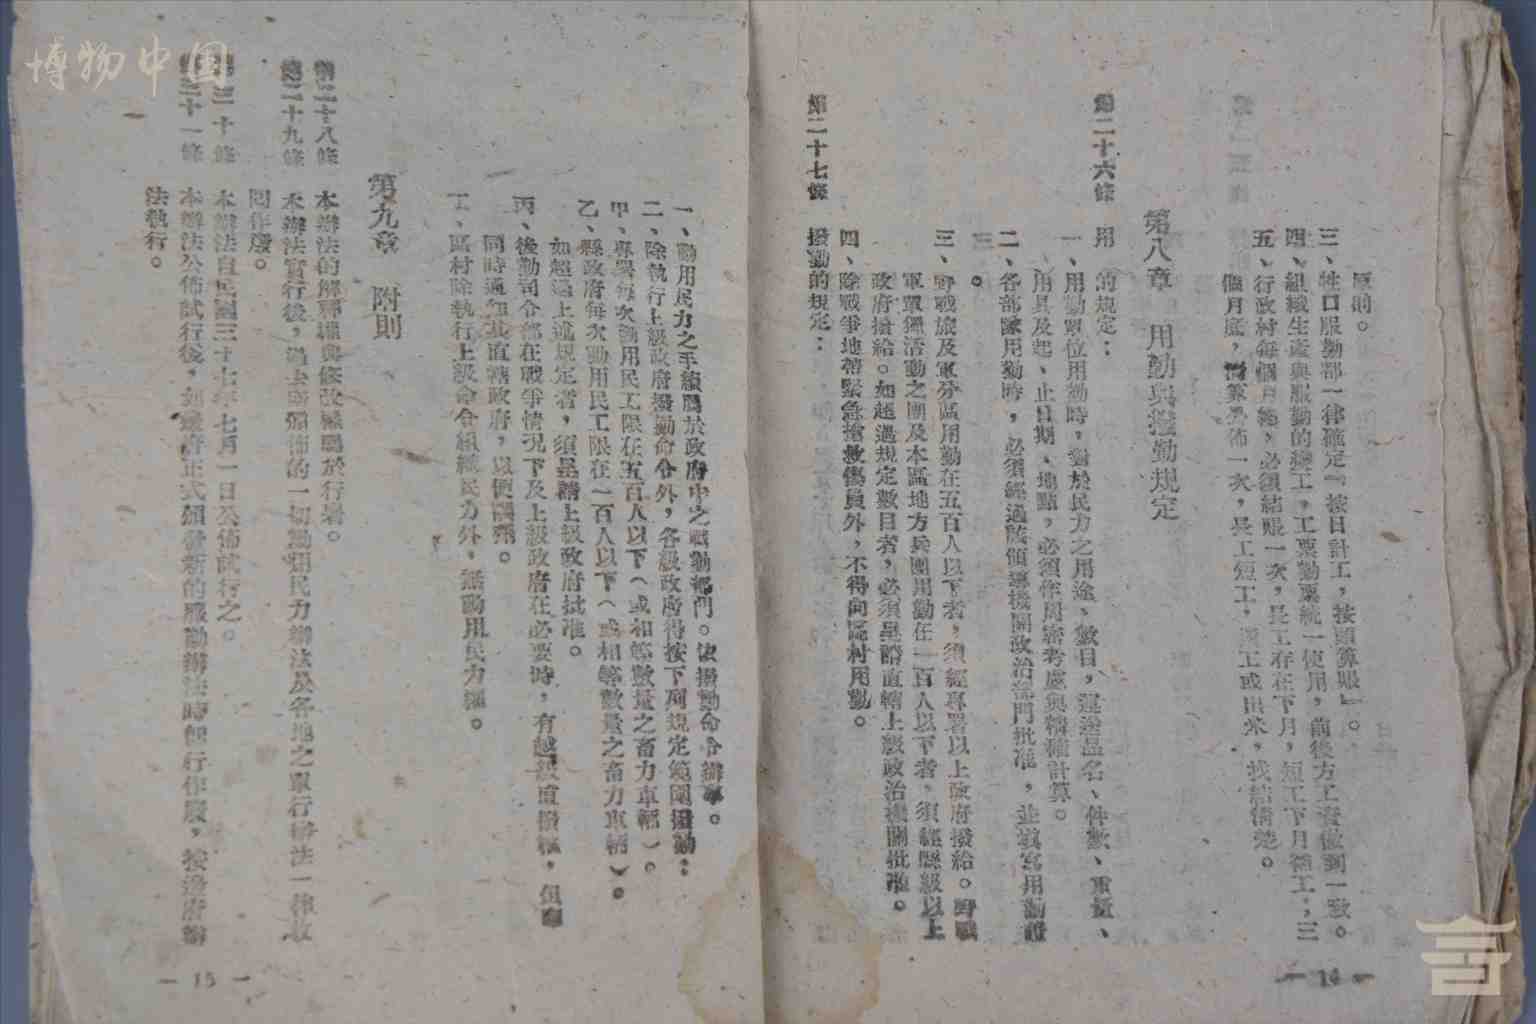 原則。
三、牲口服勤部一律確定『按日計工，按頭算賬』。
四、組織生產與服勤的變工，工票勤票統一使用，前後方工資做到一致。
五、行政村每個月終，必須結賬一次，長工存在下月，短工下月補工；三
個月底，清算公佈一次，長工短工，還工或出米，找結清楚。
第八章　用勤與撥勤規定
第二十六條　用勤的規定：
一、用勤單位用勤時，對於民力之用途、數目，運送品名、件數、重量、
用具及起、止日期、地點，必須作周密考慮與精確計算。
二、各部隊用勤時，必須經過該領導機關政治部門批准，並填寫用勤證
。
三、野戰旅及軍分區用勤在五百人以下者，須經專署以上政府撥給。野戰
軍單獨活動之團及本區地方兵團用勤在一百人以下者，須經縣級以上
政府撥給。如超過規定數目者，必須呈請直轄上級政治機關批准。
四、除戰爭地帶緊急搶救傷員外，不得向區村用勤。
第二十七條　撥勤的規定：
— 14 —
一、動用民力之手續屬於政府中之戰勤部門。依撥勤命令辦事。
二、除執行上級政府撥勤命令外，各級政府得按下列規定範圍撥勤：
甲、專署每次動用民工限在五百人以下（或相等數量之畜力車輛）。
乙、縣政府每次動用民工限在一百人以下（或相等數量之畜力車輛）。
如超過上述規定者，須呈請上級政府批准。
丙、後勤司令部在戰爭情況下及上級政府在必要時，有越級直撥權，但應
同時通知其直轄政府，以便調劑。
丁、區村除執行上級命令組織民力外，無動用民力權。
第九章　附則
第二十八條　本辦法的解釋權與修改權屬於行署。
第二十九條　本辦法實行後，過去頒佈的一切動用民力辦法及各地之單行辦法一律收
回作廢。
第三十條　本辦法自民國三十七年七月一日公佈試行之。
第三十一條　本辦法公佈試行後，如政府正式頒發新的服勤辦法時即行作廢，按政府辦
法執行。
— 15 —
博物中国